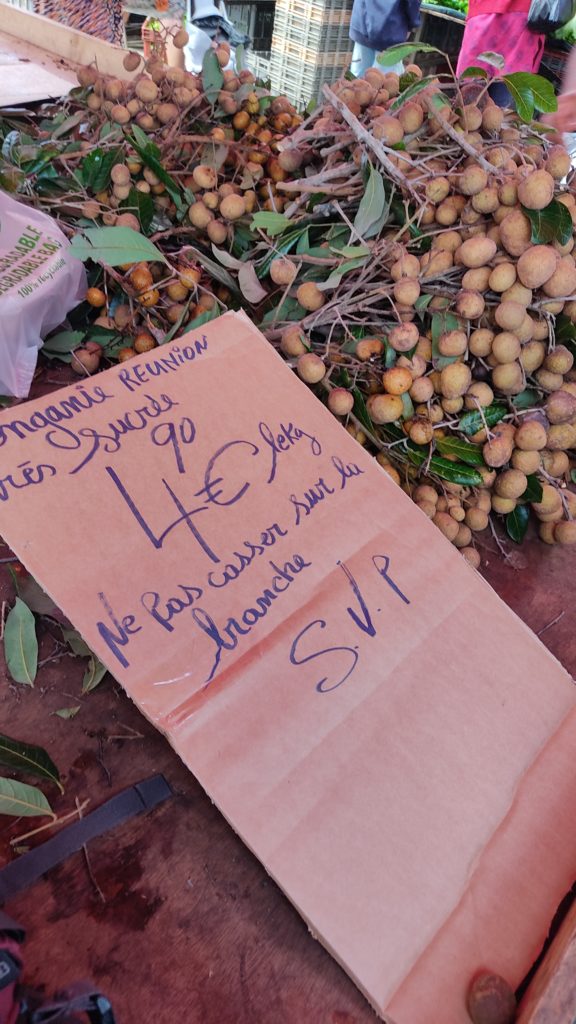 onganie REUNION
rés sucrée
4€90 le kg
Ne pas casser sur la
branche
S.V.P
DABLE
100%